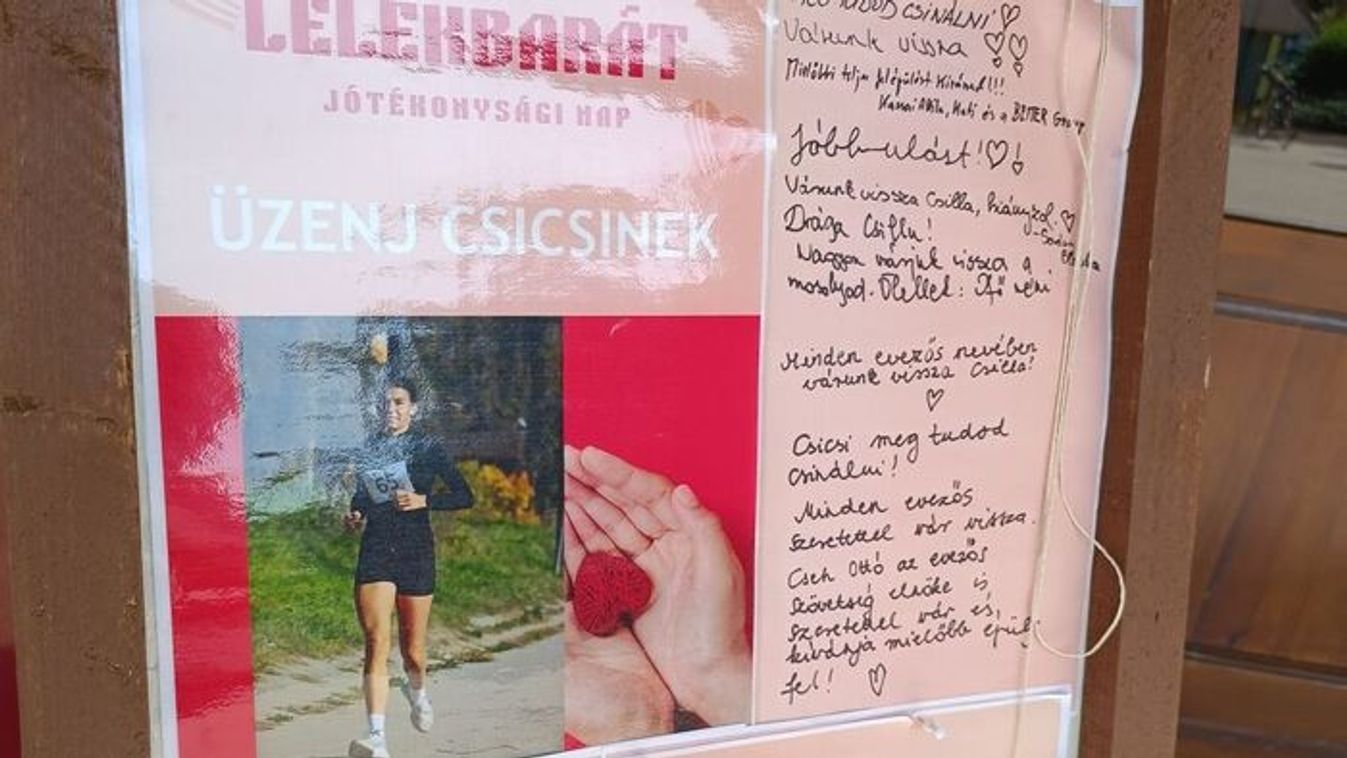 LÉLEKBARÁT
JÓTÉKONYSÁGI NAP
ÜZENJ CSICSINEK
65
TUDOD CSINÁLNI
Várunk vissza
Mielőbbi teljes felépülést kívánnak!!!
Attila, Kati és a
Jóbbulást!
Várunk vissza Csilla, hiányzol.
Drága
Nagyon várjuk vissza a
mosolyod.
Minden evezős nevében
várunk vissza Csilla!
Csicsi meg tudod
csinálni!
Minden evezős
szeretettel vár vissza.
Cseh Ottó az evezős
szövetség elnöke is
szeretettel vár és,
kívánja mielőbb épülj
fel!